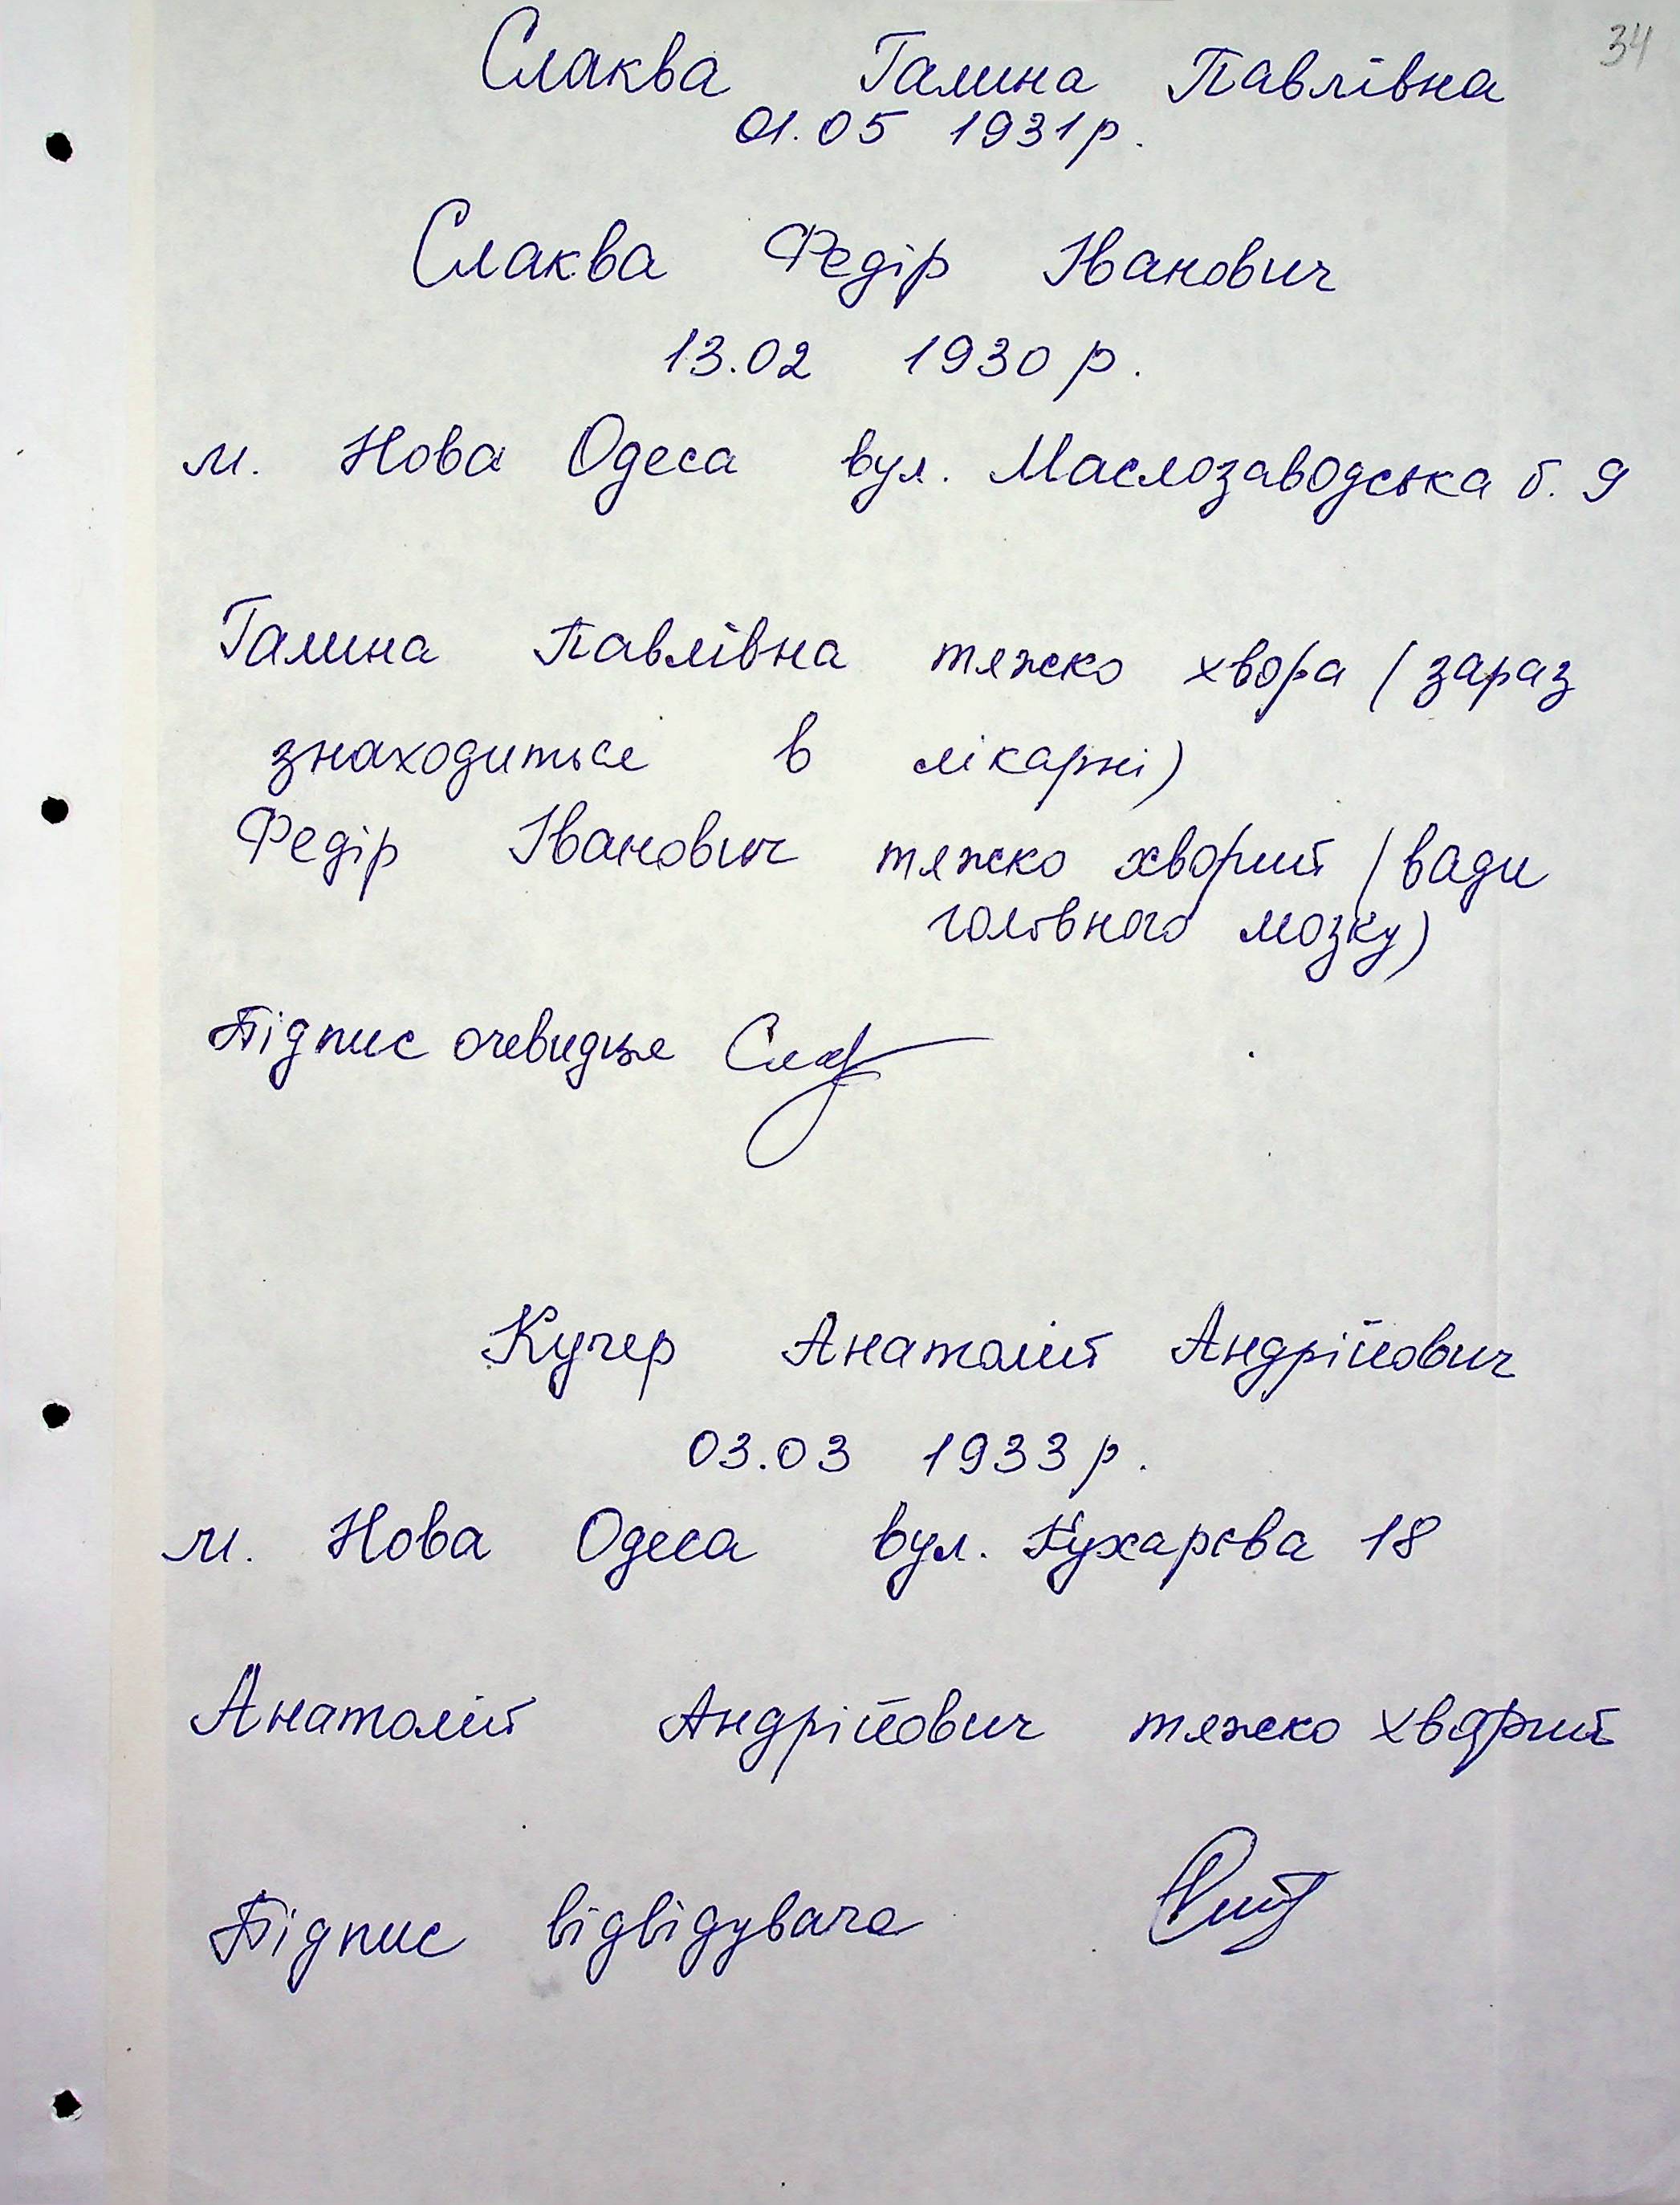 34
Слаква Галина Павлівна
01.05 1931 р.
Слаква Федір Іванович
13.02 1930 р.
м. Нова Одеса вул. Маслозаводська б. 9
Галина Павлівна тяжко хвора (зараз
знаходиться в лікарні)
Федір Іванович тяжко хворий (вади
головного мозку)
Підпис очевидця
Кучер Анатолій Андрійович
03.03 1933 р.
м. Нова Одеса вул. Кухарєва 18
Анатолій Андрійович тяжко хворий
Підпис відвідувача